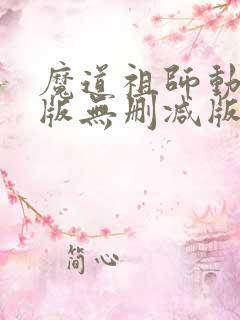 魔道祖師動
版無删减版
简心